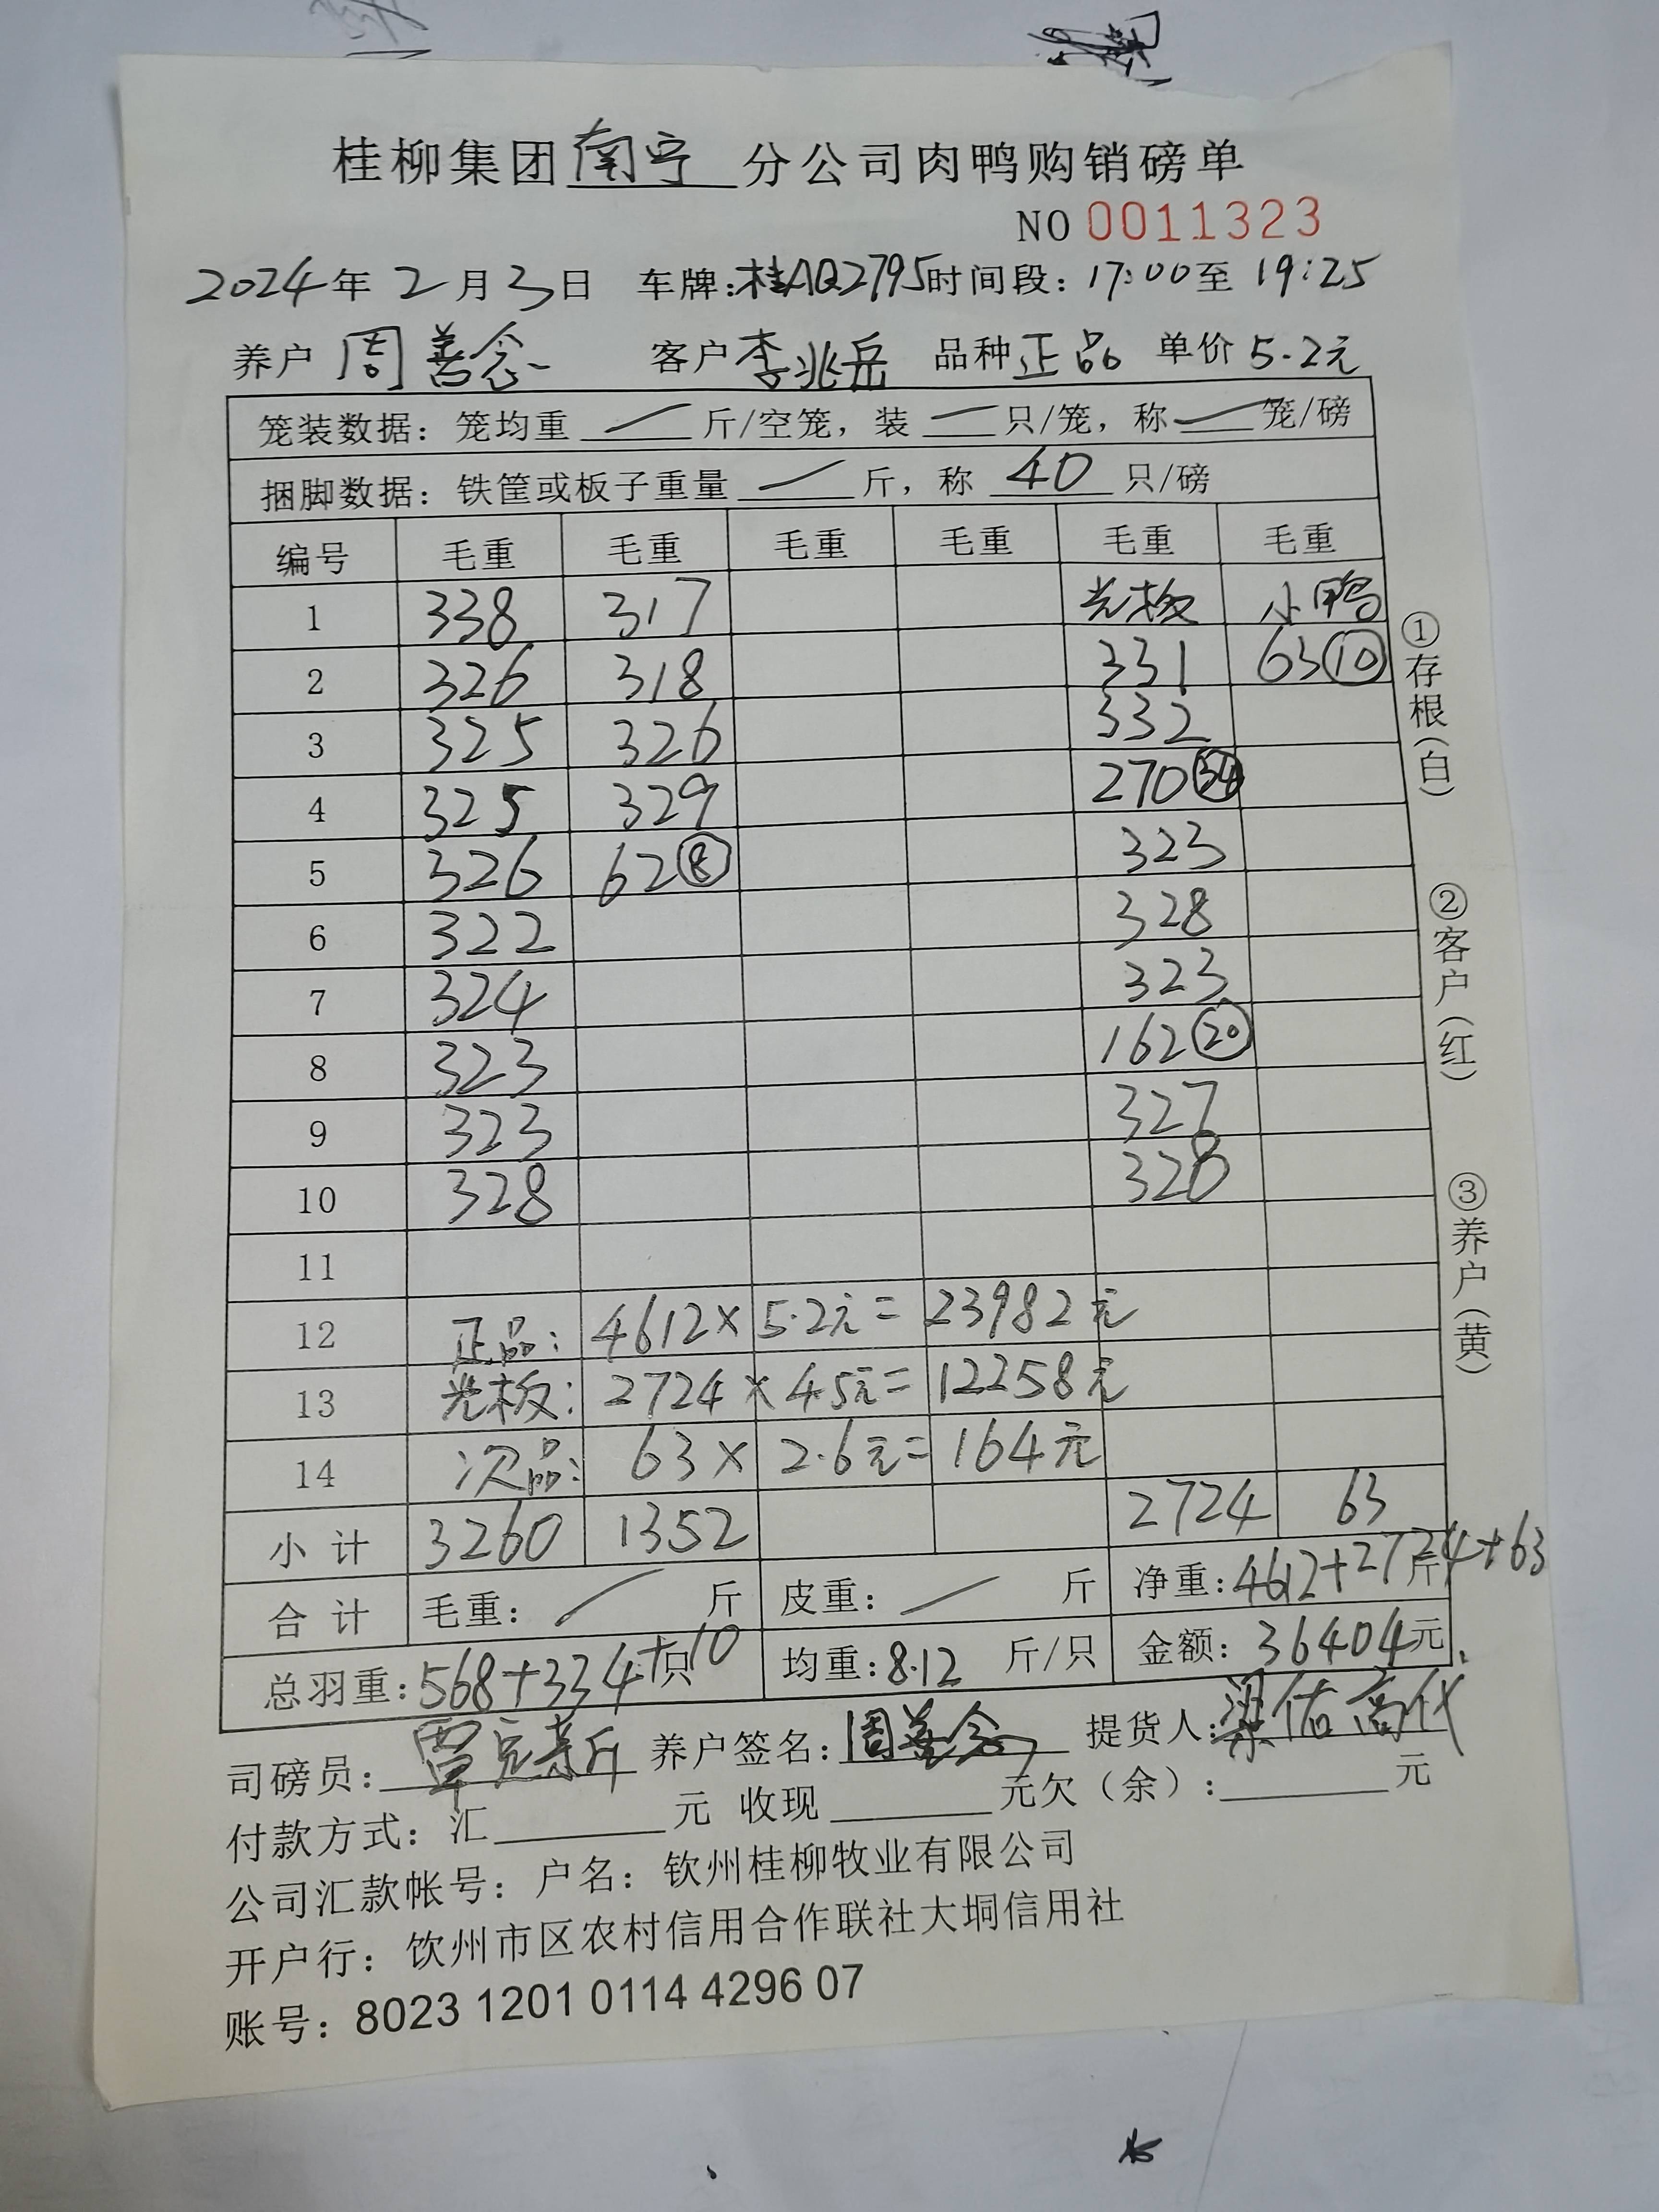 桂柳集团南宁分公司肉鸭购销磅单
NO 0011323
2024年2月3日 车牌:桂AQ2795 时间段: 17:00至19:25
养户 周善念 客户 李兆岳 品种 正品 单价 5.2元
笼装数据: 笼均重 / 斤/空笼, 装 一 只/笼, 称 / 笼/磅
捆脚数据: 铁筐或板子重量 / 斤, 称 40 只/磅
编号 毛重 毛重 毛重 毛重 毛重 毛重
1 338 317 光板 小鸭
2 326 318 331 63⑩
3 325 326 332
4 325 329 270㉞
5 326 62⑧ 323
6 322 328
7 324 323
8 323 162⑳
9 323 327
10 328 328
11
12 正品: 4612× 5.2元= 23982元
13 光板: 2724× 4.5元= 12258元
14 次品: 63× 2.6元= 164元
小计 3260 1352 2724 63
合计 毛重: / 斤 皮重: / 斤 净重: 4612+2724+63 斤
总羽重: 568+334+10 只 均重: 8.12 斤/只 金额: 36404元
司磅员: 养户签名: 周善念 提货人: 梁佑高代
付款方式: 汇 元 收现 元欠(余): 元
公司汇款帐号: 户名: 钦州桂柳牧业有限公司
开户行: 钦州市区农村信用合作联社大垌信用社
账号: 8023 1201 0114 4296 07
①存根(白)
②客户(红)
③养户(黄)